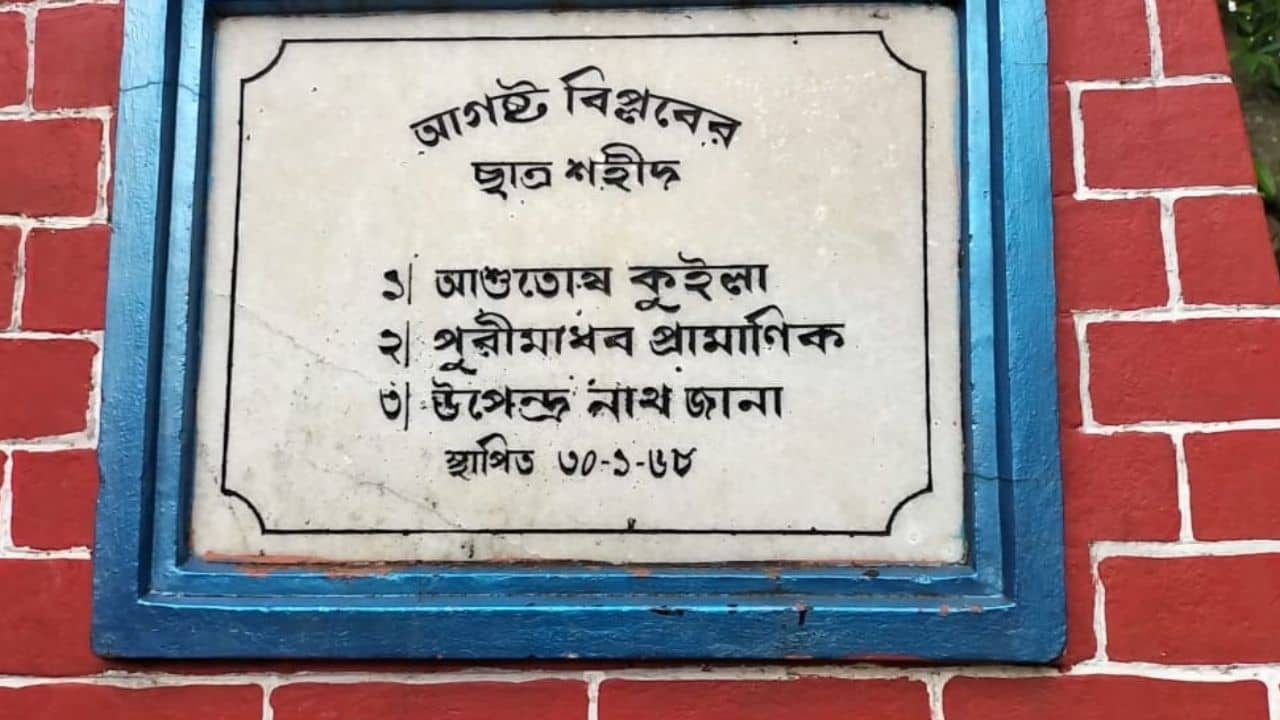 আগষ্ট বিপ্লবের
ছাত্র শহীদ
১| আশুতোষ কুইলা
২| পুরীমাধব প্রামাণিক
৩| উপেন্দ্র নাথ জানা
স্থাপিত ৩০-১-৬৮